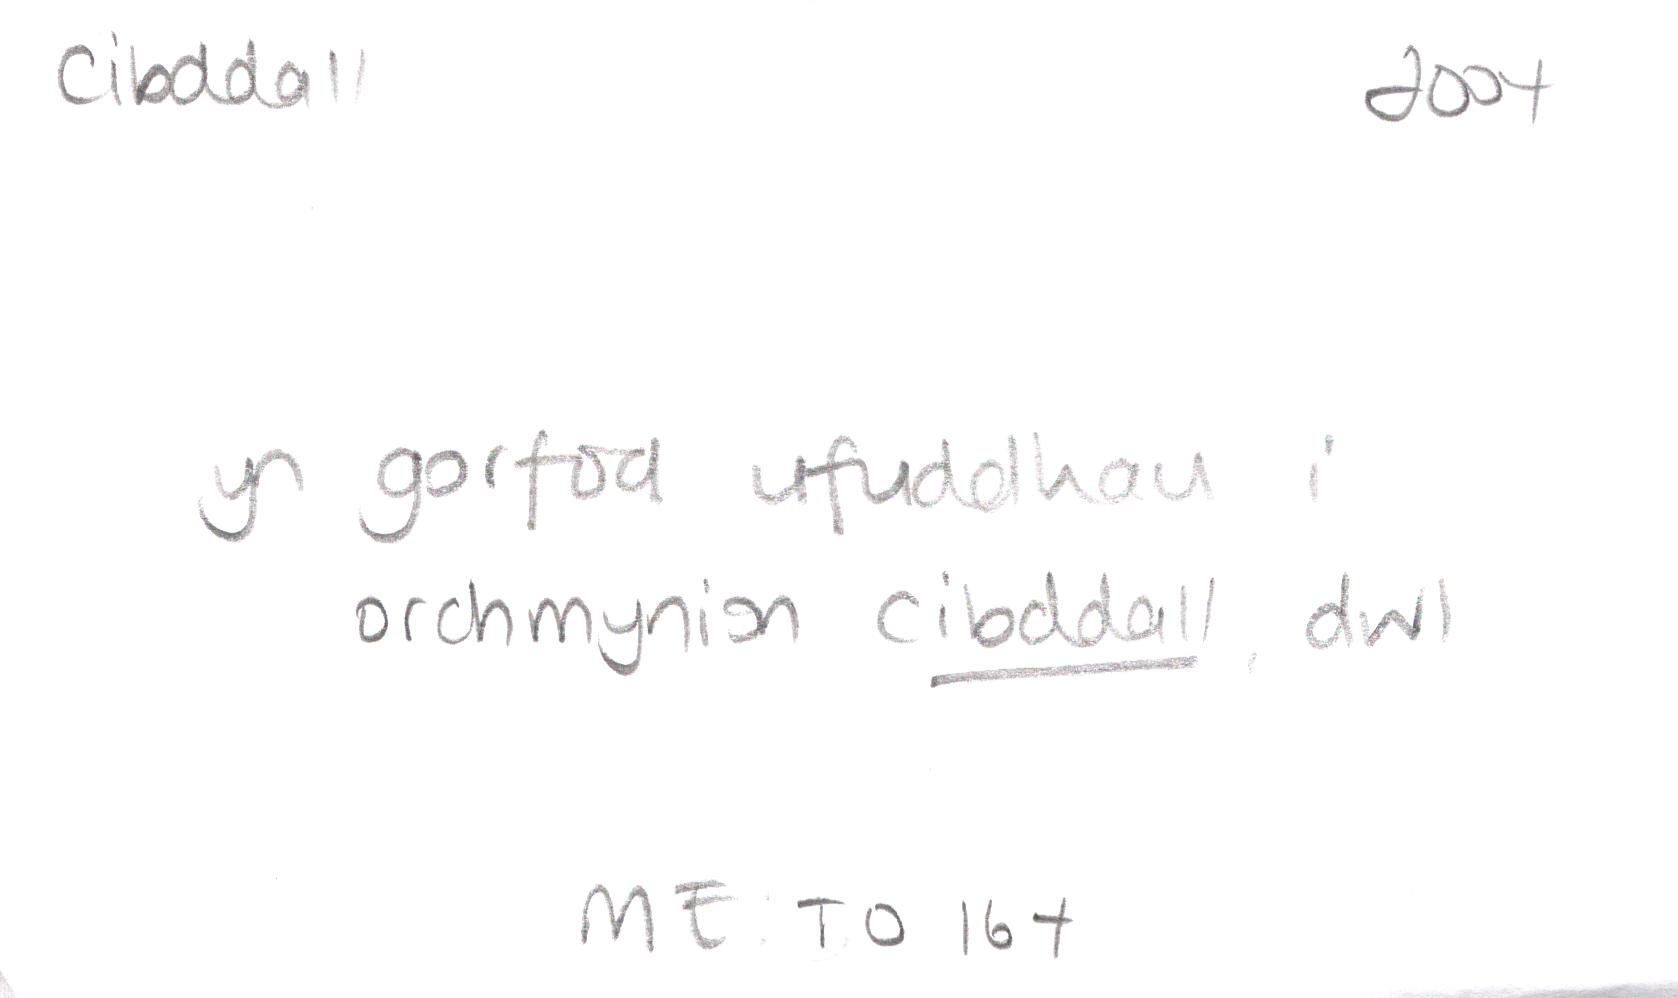 Cibddall 2004
yn gorfod ufuddhau i
orchmynion cibddall, dwl
ME: TO 164